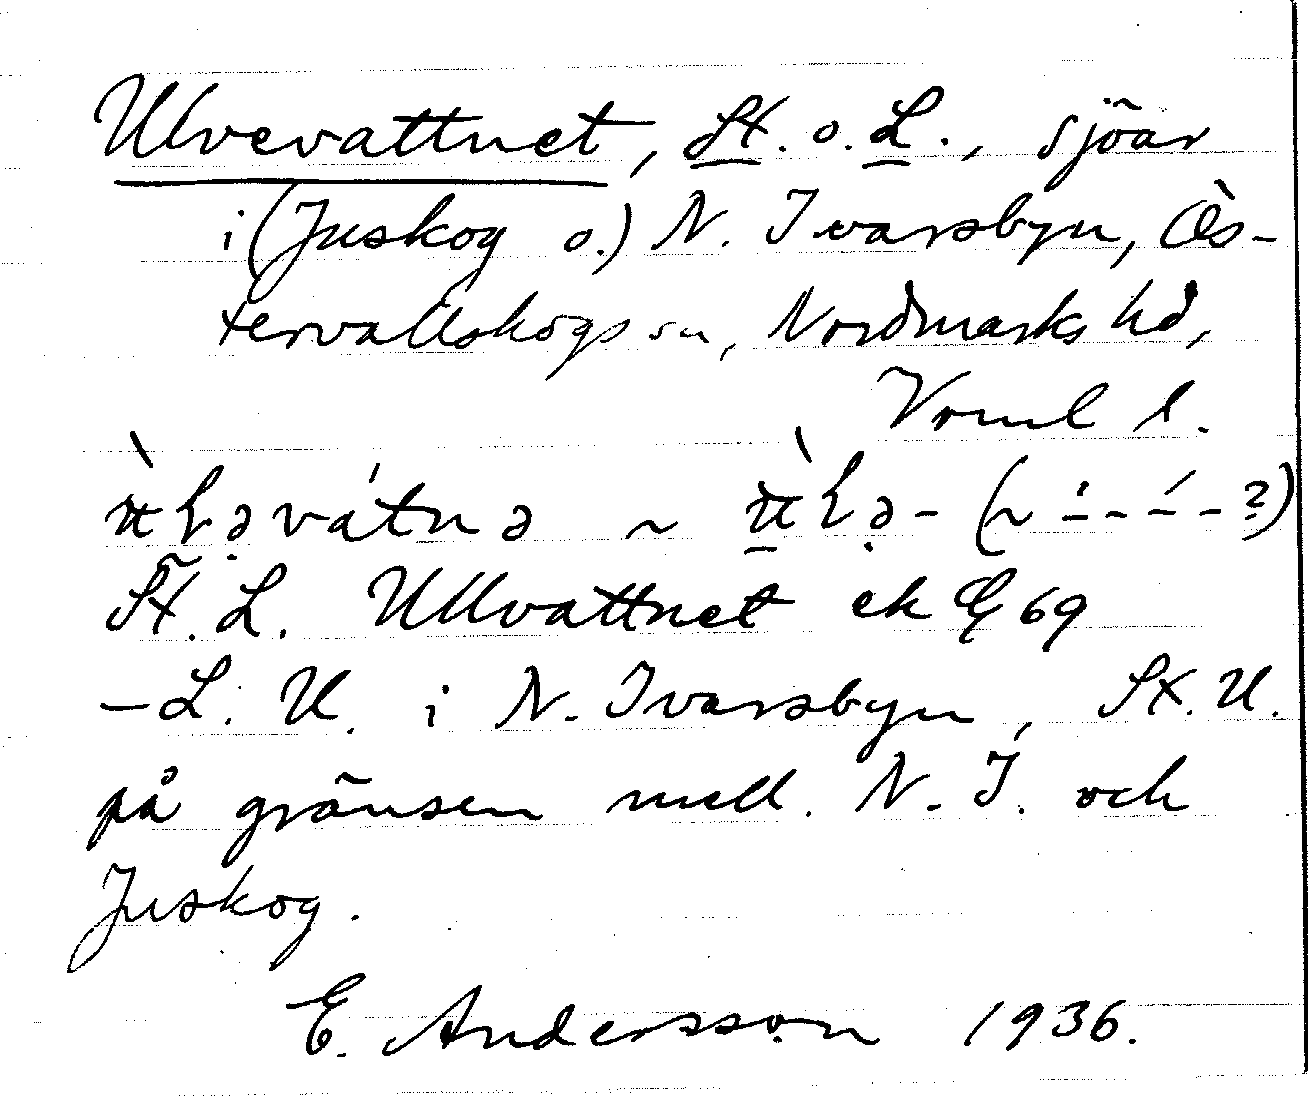 Ulvevattnet, St. o. L., sjöar
i (Juskog o.) N. Ivarsbyn, Ös-
tervallskogs sn, Nordmarks hd,
Vrml l.
St. L. Ullvattnet ek G 69
– L. U. i N. Ivarsbyn, St. U.
på gränsen mell. N. I. och
Juskog.
E. Andersson 1936.